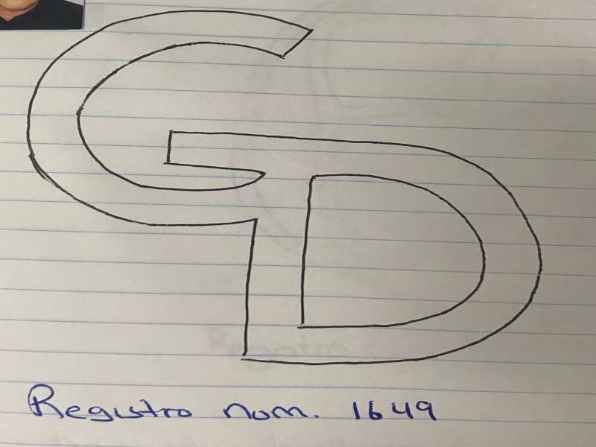 GD
Registro num. 1649